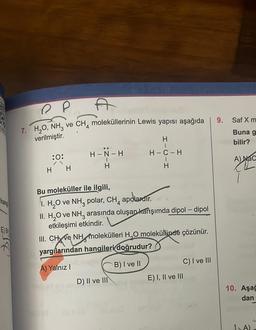 P P A
7. H₂O, NH₃ ve CH₄ moleküllerinin Lewis yapısı aşağıda
verilmiştir.
:O:
H H
H – N – H
H
H
H – C – H
H
Bu moleküller ile ilgili,
I. H₂O ve NH₃ polar, CH₄ apolardır.
II. H₂O ve NH₃ arasında oluşan karışımda dipol – dipol
etkileşimi etkindir.
III. CH₄ ve NH₃ molekülleri H₂O molekülünde çözünür.
yargılarından hangileri doğrudur?
A) Yalnız I
B) I ve II
C) I ve III
D) II ve III
E) I, II ve III
9. Saf X m
Buna g
bilir?
A) NaC
10. Aşağ
dan
A)